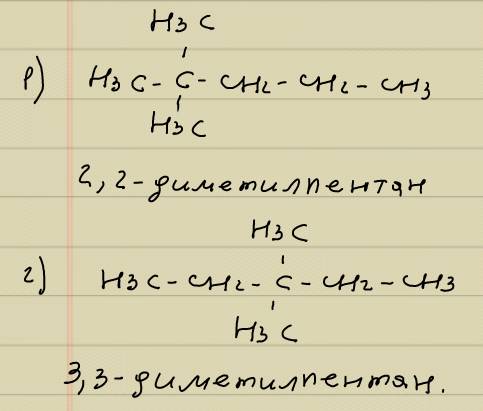 H3C
1) H3C-C-CH2-CH2-CH3
H3C
2,2-диметилпентан
H3C
2) H3C-CH2-C-CH2-CH3
H3C
3,3-диметилпентан.